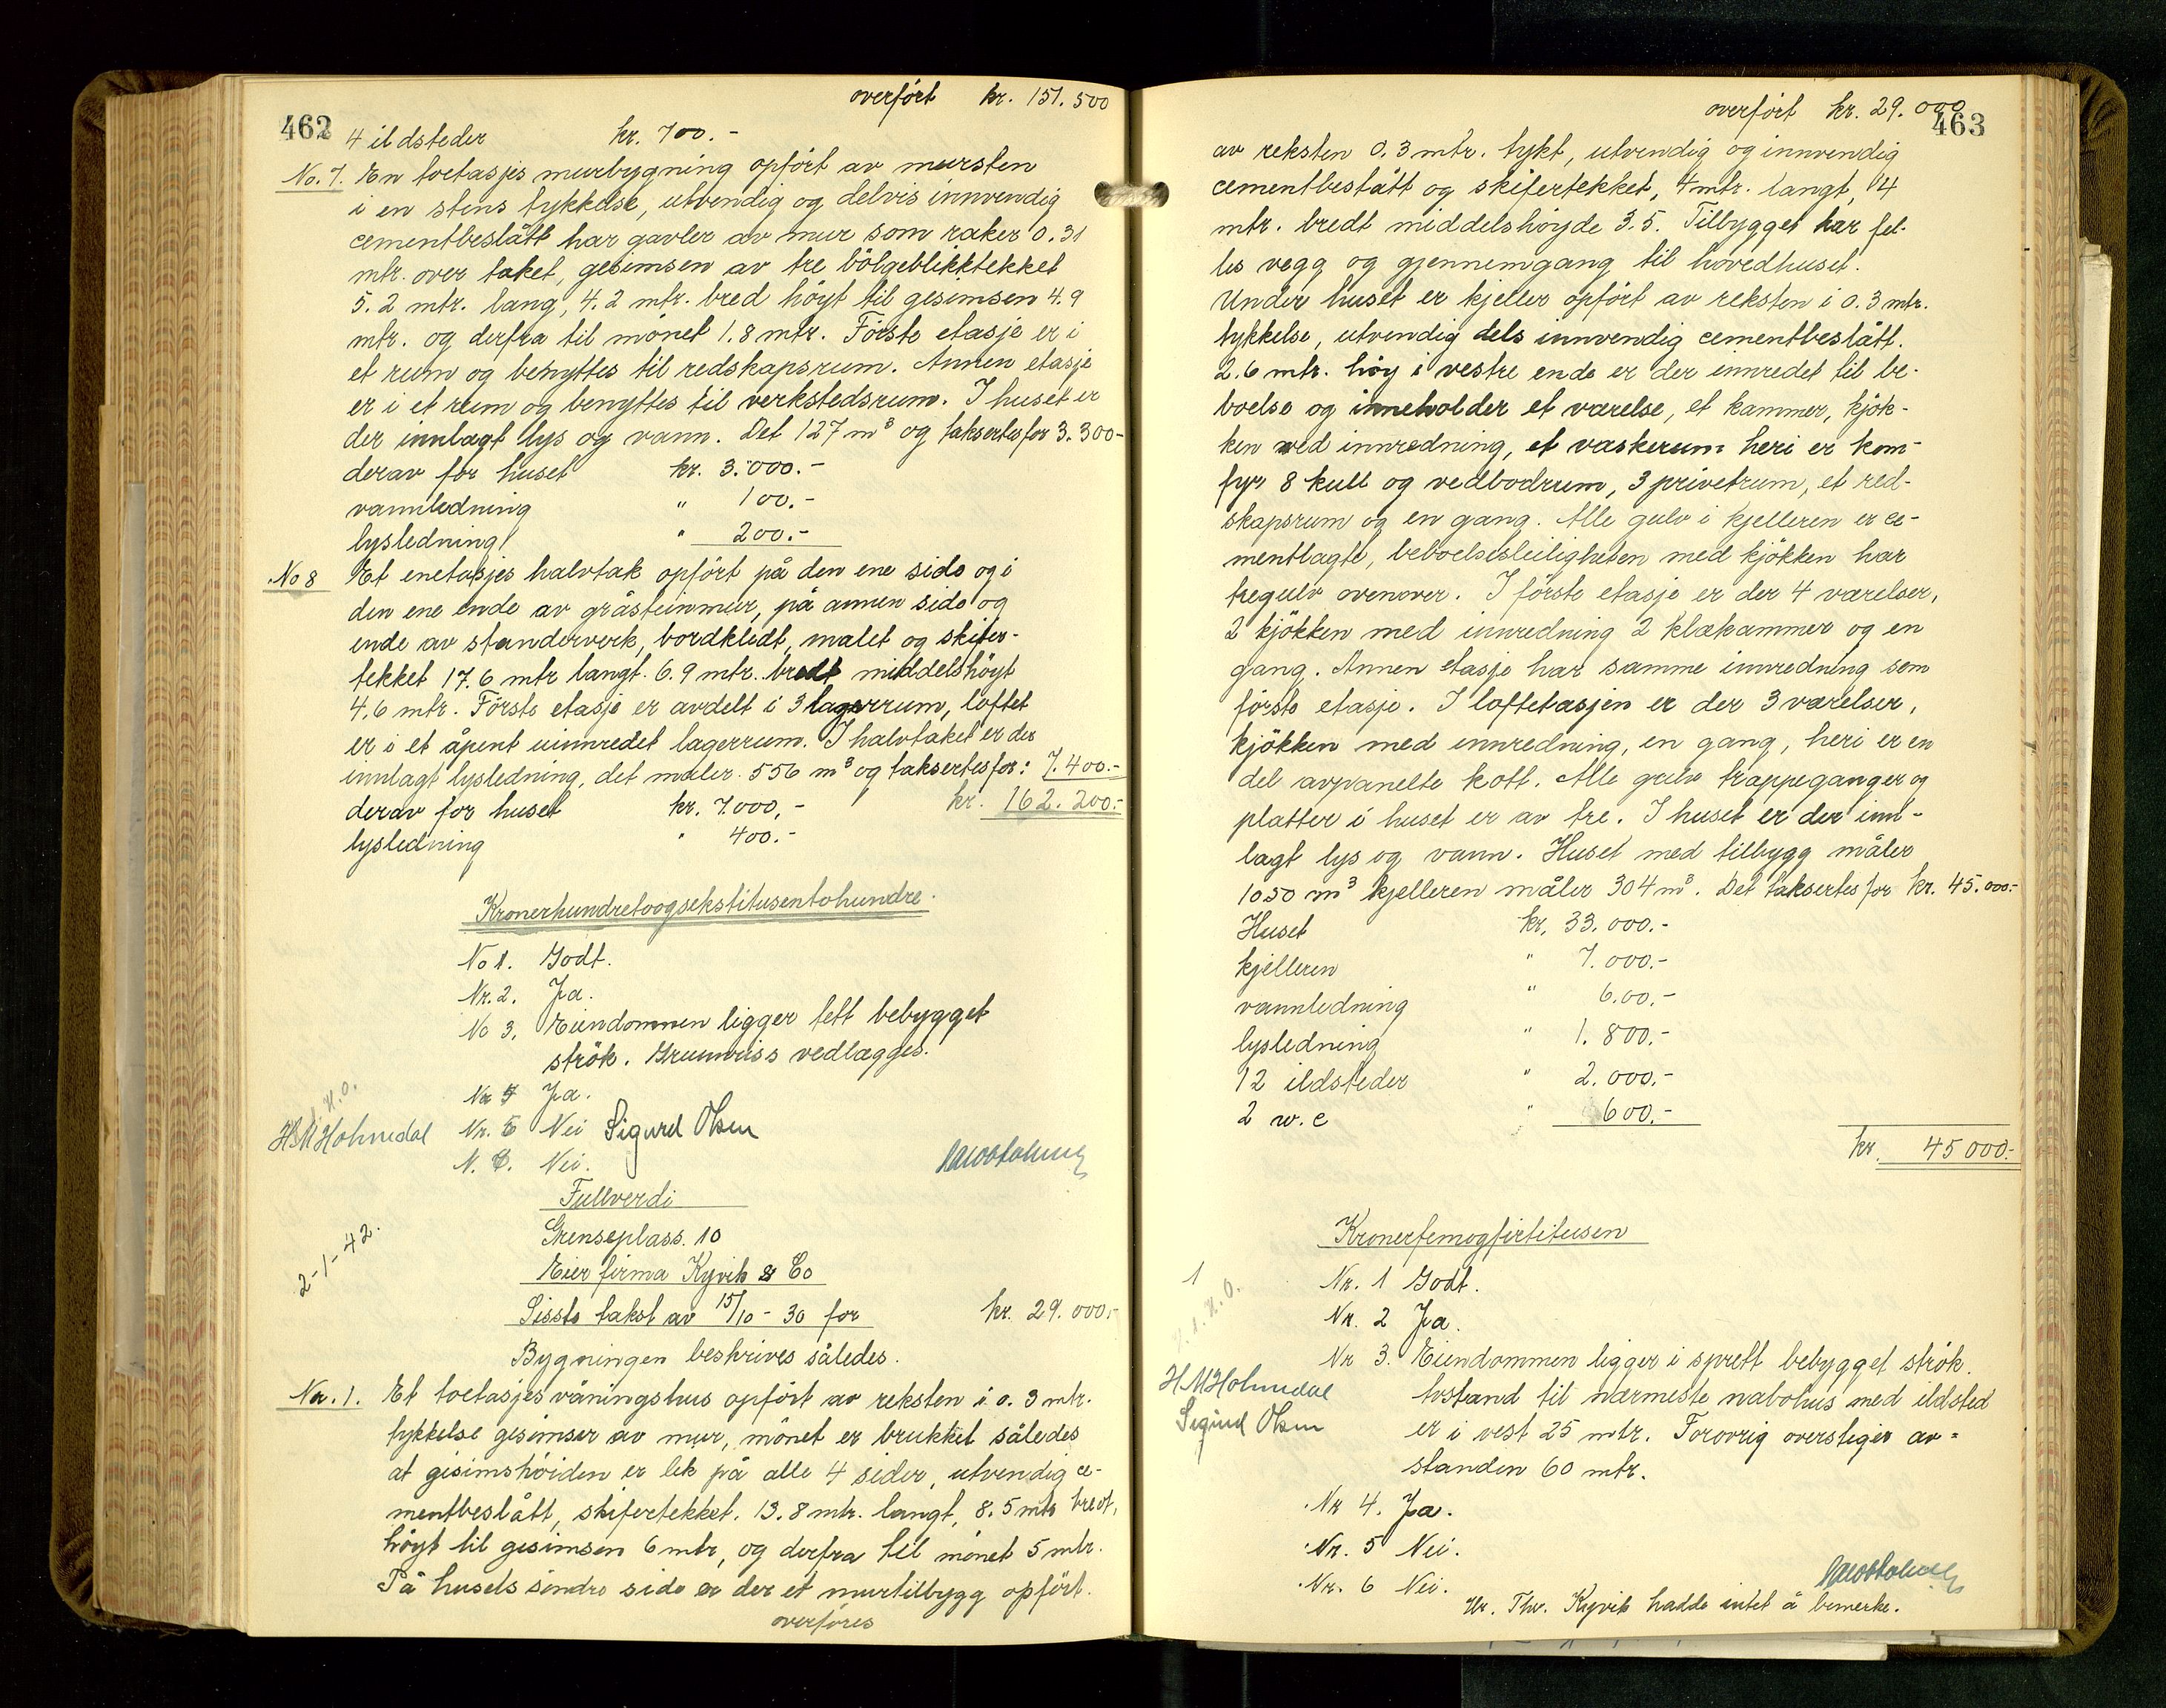 462
overført kr. 151.500
4 ildsteder kr. 700.-
No. 7. En toetasjes murbygning opført av mursten
i en stens tykkelse, utvendig og delvis innvendig
cementbeslått har gavler av mur som raker 0.31
mtr. over taket, gesimsen av tre bölgeblikktekket
5.2 mtr. lang, 4.2 mtr. bred höyt til gesimsen 4.9
mtr. og derfra til mönet 1.8 mtr. Første etasje er i
et rum og benyttes til redskapsrum. Annen etasje
er i et rum og benyttes til verkstedsrum. I huset er
der innlagt lys og vann. Det 127 m³ og taksertes for 3.300-
derav for huset kr. 3.000.-
vannledning " 100.-
lysledning " 200.-
No 8 Et enetasjes halvtak opfört på den ene side og i
den ene ende av gråsteinmur, på annen side og
ende av standerverk, bordkledt, malet og skifer-
tekket 17.6 mtr langt. 6.9 mtr. bredt middelshöyt
4.6 mtr. Förste etasje er avdelt i 3 lagerrum, loftet
er i et åpent uinnredet lagerrum. I halvtaket er der
innlagt lysledning, det måler 556 m³ og taksertes for: 7.400.-
derav for huset kr. 7.000,- kr. 162.200.-
lysledning " 400.-
Kronerhundretoogsekstitusentohundre.
No 1. Godt.
Nr. 2. Ja.
No 3. Eiendommen ligger tett bebygget
strök. Grunnriss vedlægges.
Nr 4 Ja.
H.M Holmedal Nr. 5 Nei Sigurd Olsen
N. 6. Nei.
Fullverdi
2-1-42. Grenseplass. 10
Eier firma Kyvik & Co
Sisste takst av 15/10-30 for kr. 29.000.-
Bygningen beskrives således.
Nr. 1. Et toetasjes våningshus opfört av reksten i 0.3 mtr.
tykkelse gesimser av mur, mönet er brukket således
at gesimshöiden er lik på alle 4 sider, utvendig ce-
mentbeslått, skifertekket. 13.8 mtr. langt, 8.5 mtr bredt,
höyt til gesimsen 6 mtr, og derfra til mönet 5 mtr.
På husets söndre side er der et murtilbygg opfört.
overføres
463
overfört kr. 29.000
av reksten 0.3 mtr. tykt, utvendig og innvendig
cementbeslått og skifertekket, 4 mtr. langt, 14
mtr. bredt middelshöyde 3.5. Tilbygget har fel-
les vegg og gjennemgang til hovedhuset.
Under huset er kjeller opfört av reksten i 0.3 mtr.
tykkelse, utvendig dels innvendig cementbeslått.
2.6 mtr. höy i vestre ende er der innredet til be-
boelse og inneholder et værelse, et kammer, kjök-
ken med innredning, et vaskerum heri er kom-
fyr 8 kull og vedbodrum, 3 privetrum, et red-
skapsrum og en gang. Alle gulv i kjelleren er ce-
mentlagte, beboelsesleiligheten med kjökken har
tregulv ovenover. I förste etasje er der 4 værelser,
2 kjökken med innredning 2 klækammer og en
gang. Annen etasje har samme innredning som
förste etasje. I loftetasjen er der 3 værelser,
kjökken med innredning, en gang, heri er en
del avpanelte kott. Alle gulv trappeganger og
platter i huset er av tre. I huset er der inn-
lagt lys og vann. Huset med tilbygg måler
1050 m³ kjelleren måler 304 m³. Det taksertes for kr. 45.000.-
Huset kr. 33.000.-
kjelleren " 7.000.-
vannledning " 600.-
lysledning " 1.800.-
12 ildsteder " 2.000.-
2 w.c " 600.-
kr. 45000.-
Kronerfemogfirtitusen
1 Nr. 1 Godt.
Nr. 2 Ja.
Nr 3. Eiendommen ligger i sprett bebygget strök.
H M Holmedal Avstand til nærmeste nabohus med ildsted
Sigurd Olsen er i vest 25 mtr. Forøvrig overstiger av-
standen 60 mtr.
Nr 4. Ja.
Nr. 5 Nei.
Nr. 6 Nei.
Hr. Thv. Kyvik hadde intet å bemerke.